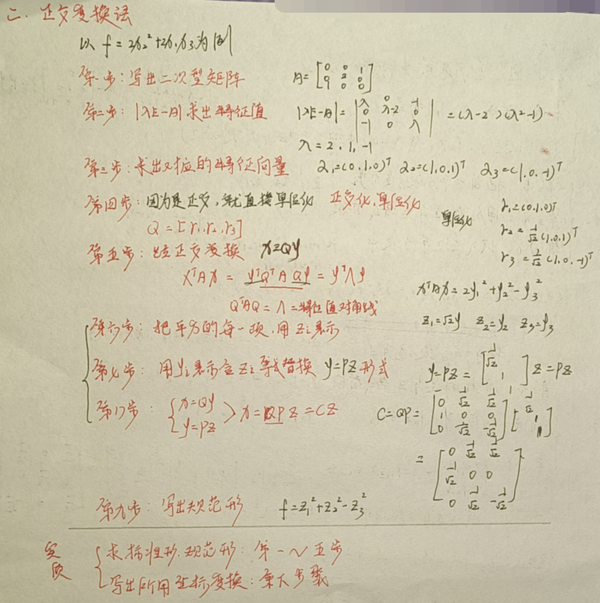 二. 正交变换法
以 f=2x₂²+2x₁x₃为例
第一步: 写出二次型矩阵 A=[0 0 1; 0 2 0; 1 0 0]
第二步: |λE-A| 求出特征值 |λE-A|=|λ 0 -1; 0 λ-2 0; -1 0 λ|=(λ-2)(λ²-1)
λ=2, 1, -1
第三步: 求出对应的特征向量 α₁=(0,1,0)ᵀ α₂=(1,0,1)ᵀ α₃=(1,0,-1)ᵀ
第四步: 因为是正交, 就直接单位化 正交化, 单位化
Q=[r₁,r₂,r₃] 单位化 r₁=(0,1,0)ᵀ
r₂=1/√2(1,0,1)ᵀ
r₃=1/√2(1,0,-1)ᵀ
第五步: 正交变换 x=Qy
xᵀAx=yᵀQᵀAQy=yᵀΛy xᵀAx=2y₁²+y₂²-y₃²
QᵀAQ=Λ=特征值对角线
第六步: 把平方的每一项用 Zᵢ表示 z₁=√2y z₂=y₂ z₃=y₃
第七步: 用yᵢ表示含Zᵢ 替换 y=PZ形式 y=PZ=[1/√2; 1; 1]Z=PZ
第八步: {x=Qy y=PZ > x=QPZ=CZ C=QP=[0 1/√2 1/√2; 1 0 0; 0 1/√2 -1/√2][1/√2; 1; 1]
=[0 1/√2 1/√2; 1/√2 0 0; 0 1/√2 -1/√2]
第九步: 写出规范形 f=z₁²+z₂²-z₃²
{求标准形. 规范形: 第一~五步
写出所用坐标变换: 第六步